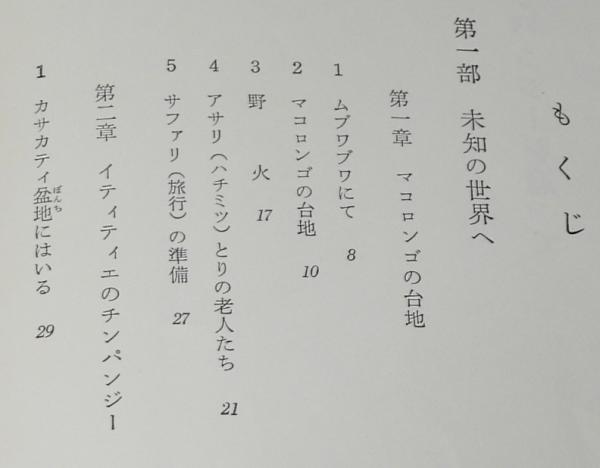 もくじ
第一部 未知の世界へ
第一章 マコロンゴの台地
1 ムブワブワにて 8
2 マコロンゴの台地 10
3 野火 17
4 アサリ(ハチミツ)とりの老人たち 21
5 サファリ(旅行)の準備 27
第二章 イティティエのチンパンジー
1 カサカティ盆地にはいる 29
ぼんち